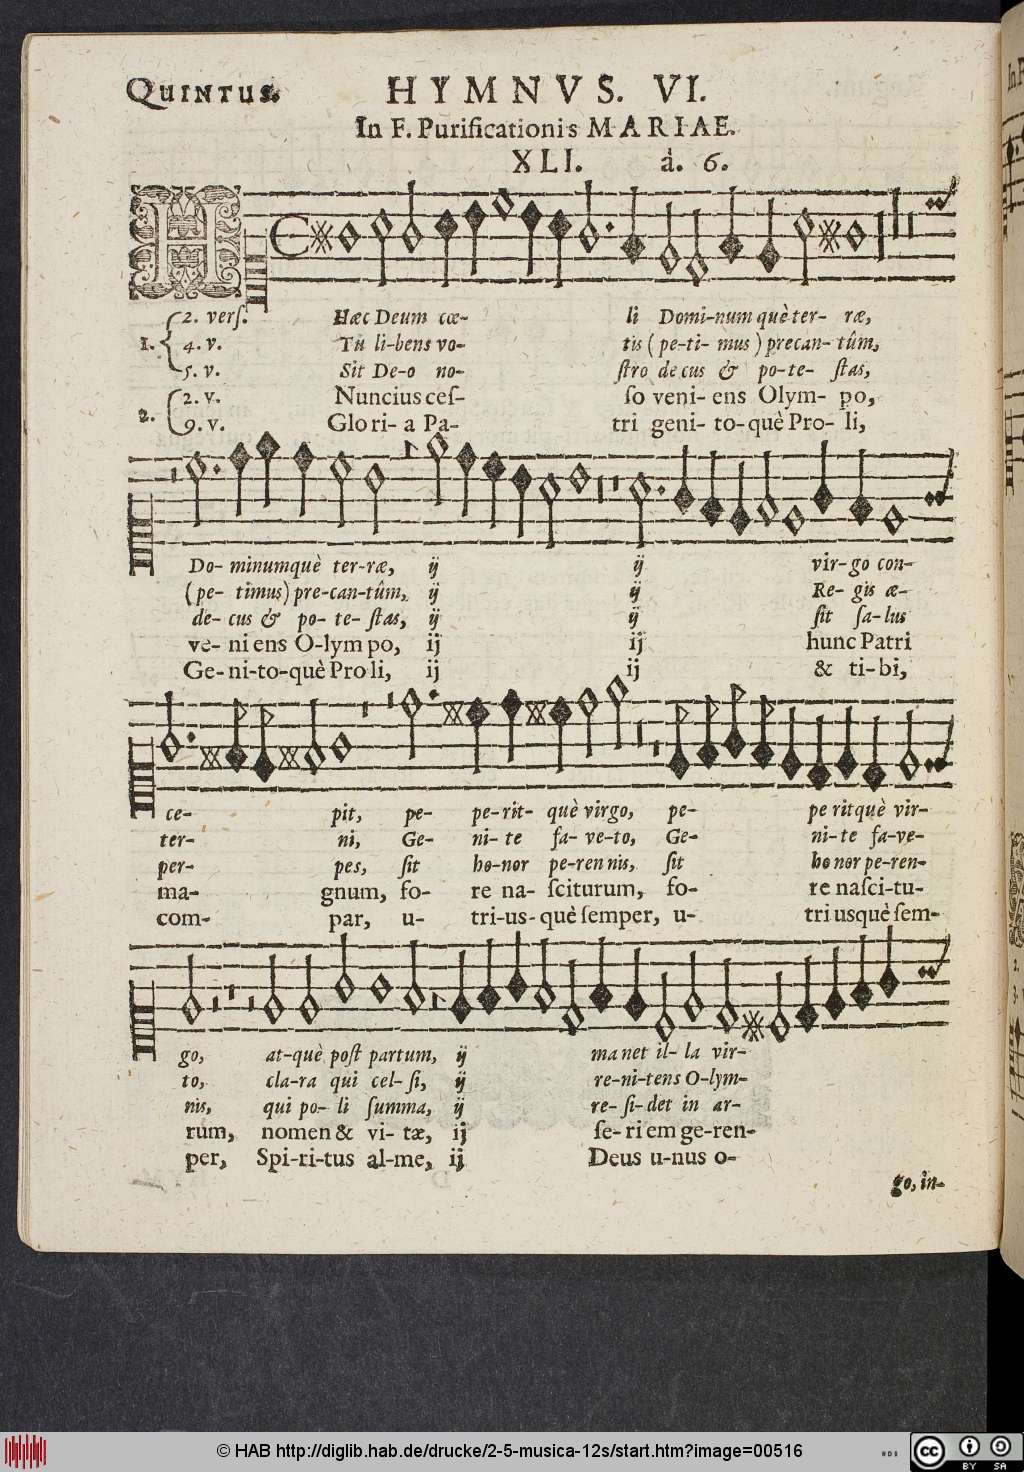 QUINTUS.
HYMNVS. VI.
In F. Purificationis MARIAE.
XLI. à. 6.
H
1. 2. verſ. Hæc Deum cœ- li Domi-num què ter- ræ,
4. v. Tu li-bens vo- tis (pe-ti- mus) precan- tûm,
5. v. Sit De-o no- ſtro decus & po-te- ſtas,
2. 2. v. Nuncius ceſ- ſo veni- ens Olym- po,
9. v. Glori- a Pa- tri geni- to-què Pro- li,
Do- minumquè ter-ræ, ij ij vir-go con-
(pe- timus) pre-can-tûm, ij ij Re- gis æ-
de- cus & po- te- ſtas, ij ij ſit ſa-lus
ve- niens O-lympo, ij ij hunc Patri
Ge-ni-to-què Proli, ij ij & ti-bi,
ce- pit, pe- pe-rit- què virgo, pe- pe ritquè vir-
ter- ni, Ge- ni- te fa- ve-to, Ge- ni-te fa-ve-
per- pes, ſit ho-nor pe-ren nis, ſit ho nor pe-ren-
ma- gnum, fo- re na- ſciturum, fo- re naſci-tu-
com- par, u- tri-us-què ſemper, u- tri usquè ſem-
go, at-què poſt partum, ij manet il- la vir-
to, cla-ra qui cel-ſi, ij re-ni-tens O-lym-
nis, qui po- li ſumma, ij re- ſi-det in ar-
rum, nomen & vi- tæ, ij ſe-riem ge-ren-
per, Spi-ri-tus al-me, ij Deus u-nus o-
go, in-
© HAB http://diglib.hab.de/drucke/2-5-musica-12s/start.htm?image=00516
cc BY SA